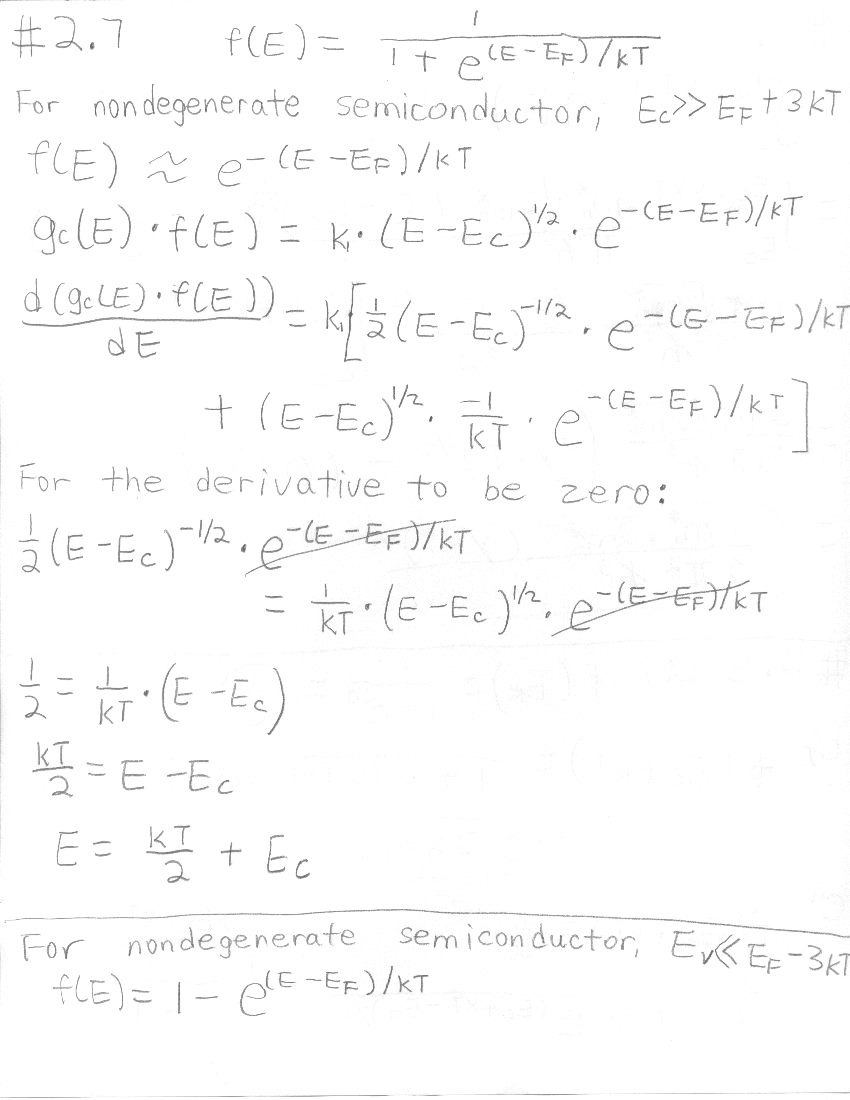 #2.7 f(E) = 1 / (1 + e^((E-E_F)/kT))
For nondegenerate semiconductor, E_c >> E_F + 3kT
f(E) ≈ e^(-(E-E_F)/kT)
g_c(E) · f(E) = k₁ · (E-E_c)^(1/2) · e^(-(E-E_F)/kT)
d(g_c(E) · f(E)) / dE = k₁[1/2 (E-E_c)^(-1/2) · e^(-(E-E_F)/kT)
+ (E-E_c)^(1/2) · -1/kT · e^(-(E-E_F)/kT)]
For the derivative to be zero:
1/2 (E-E_c)^(-1/2) · e^(-(E-E_F)/kT)
= 1/kT · (E-E_c)^(1/2) · e^(-(E-E_F)/kT)
1/2 = 1/kT · (E-E_c)
kT/2 = E-E_c
E = kT/2 + E_c
For nondegenerate semiconductor, E_v << E_F - 3kT
f(E) = 1 - e^((E-E_F)/kT)